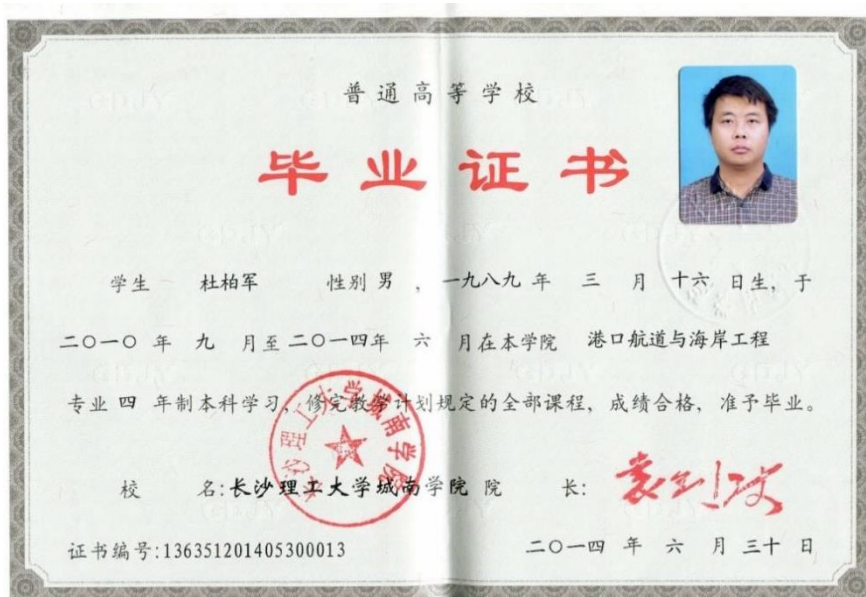 普通高等学校
毕业证书
学生 杜柏军 性别 男 , 一九八九 年 三 月 十六 日生, 于
二〇一〇 年 九 月至 二〇一四年 六 月在本学院 港口航道与海岸工程
专业 四 年制本科学习, 修完教学计划规定的全部课程, 成绩合格, 准予毕业。
校 名: 长沙理工大学城南学院 院 长:
长沙理工大学城南学院
证书编号:136351201405300013 二〇一四 年 六 月 三十 日